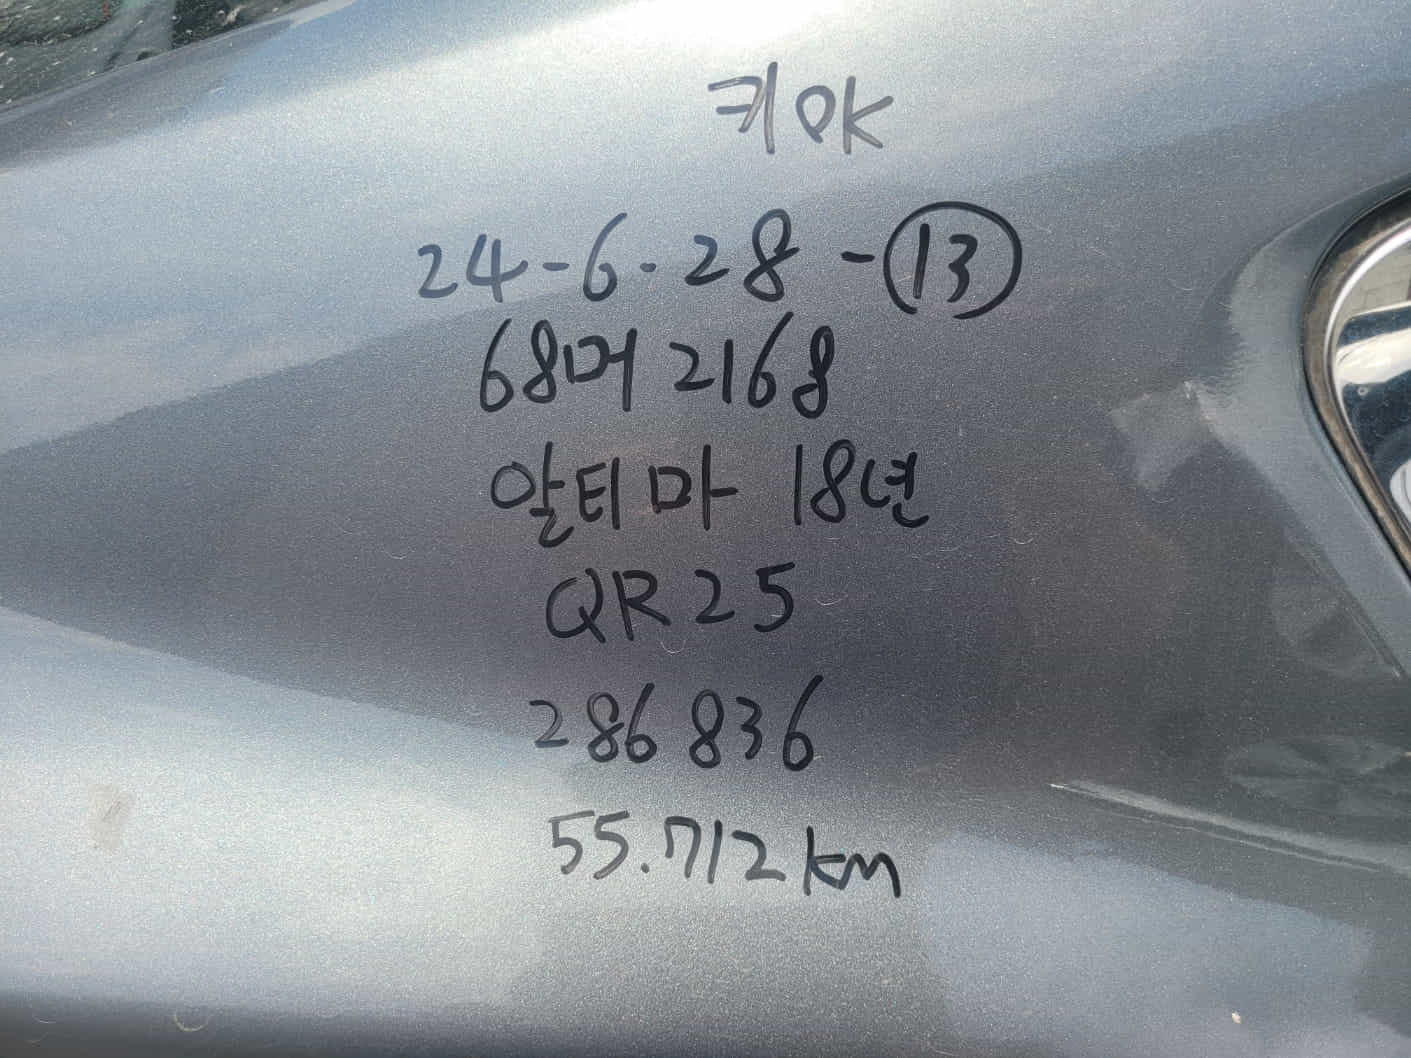 키OK
24-6-28-⑬
68머2168
알티마 18년
QR25
286836
55.712km